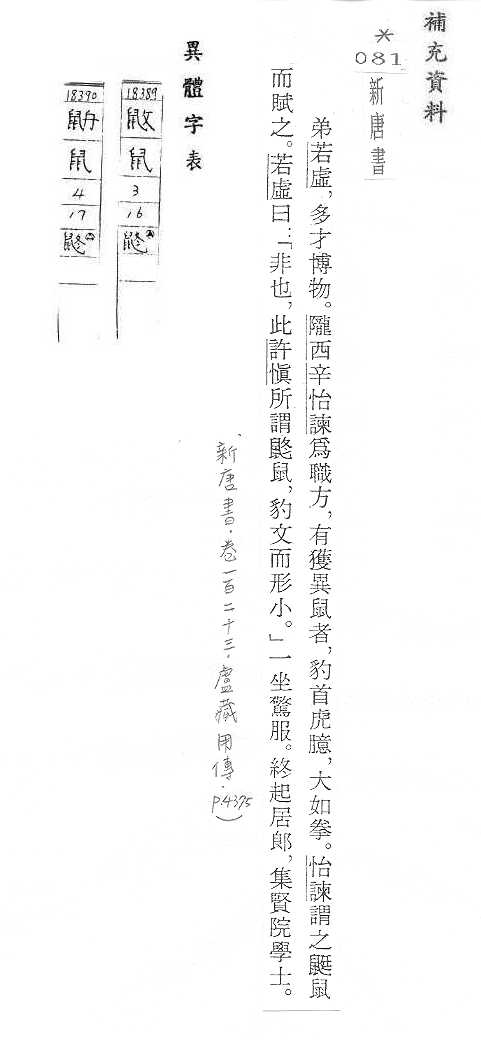 補充資料
*
081
新唐書
弟若虛，多才博物。隴西辛怡諫爲職方，有獲異鼠者，豹首虎臆，大如拳。怡諫謂之鼮鼠
而賦之。若虛曰：「非也，此許愼所謂鼨鼠，豹文而形小。」一坐驚服。終起居郎，集賢院學士。
新唐書．卷一百二十三．盧藏用傳．p.4375)
異體字表
18389
鼠
3
16
鼨
18390
鼠
4
17
鼨